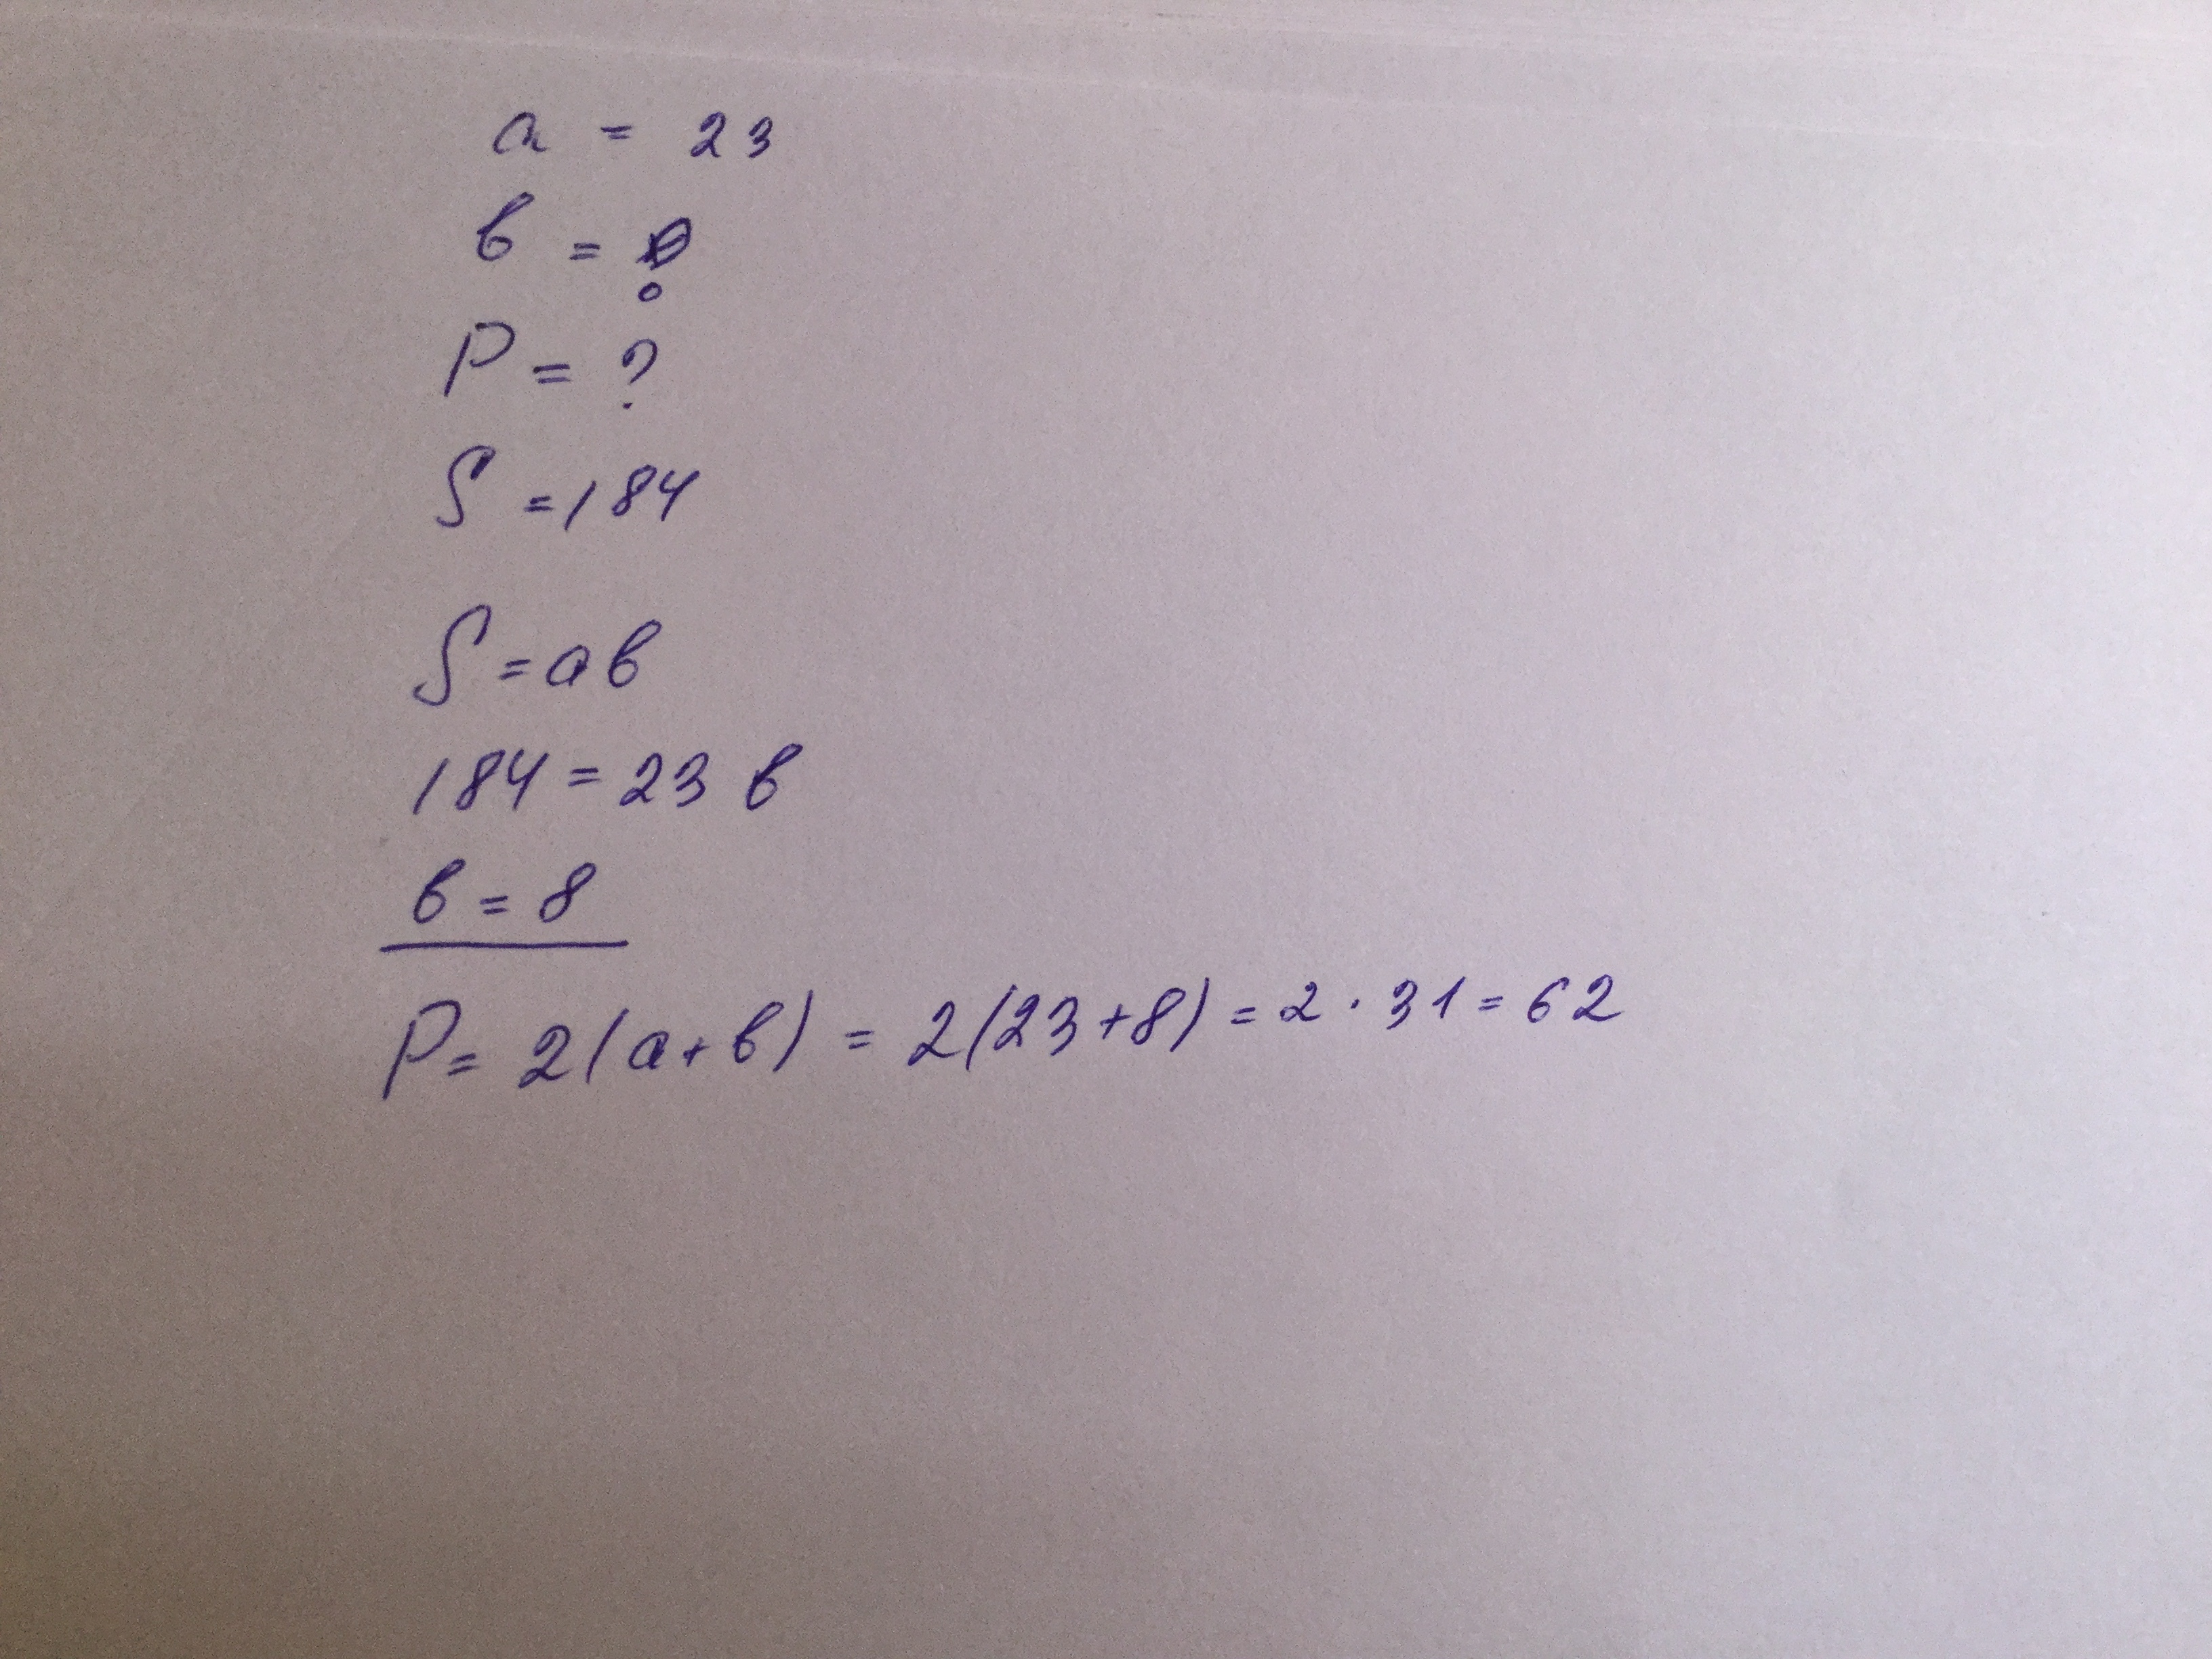 a = 23
b = ?
P = ?
S = 184
S = ab
184 = 23 b
b = 8
P = 2(a+b) = 2(23+8) = 2 · 31 = 62